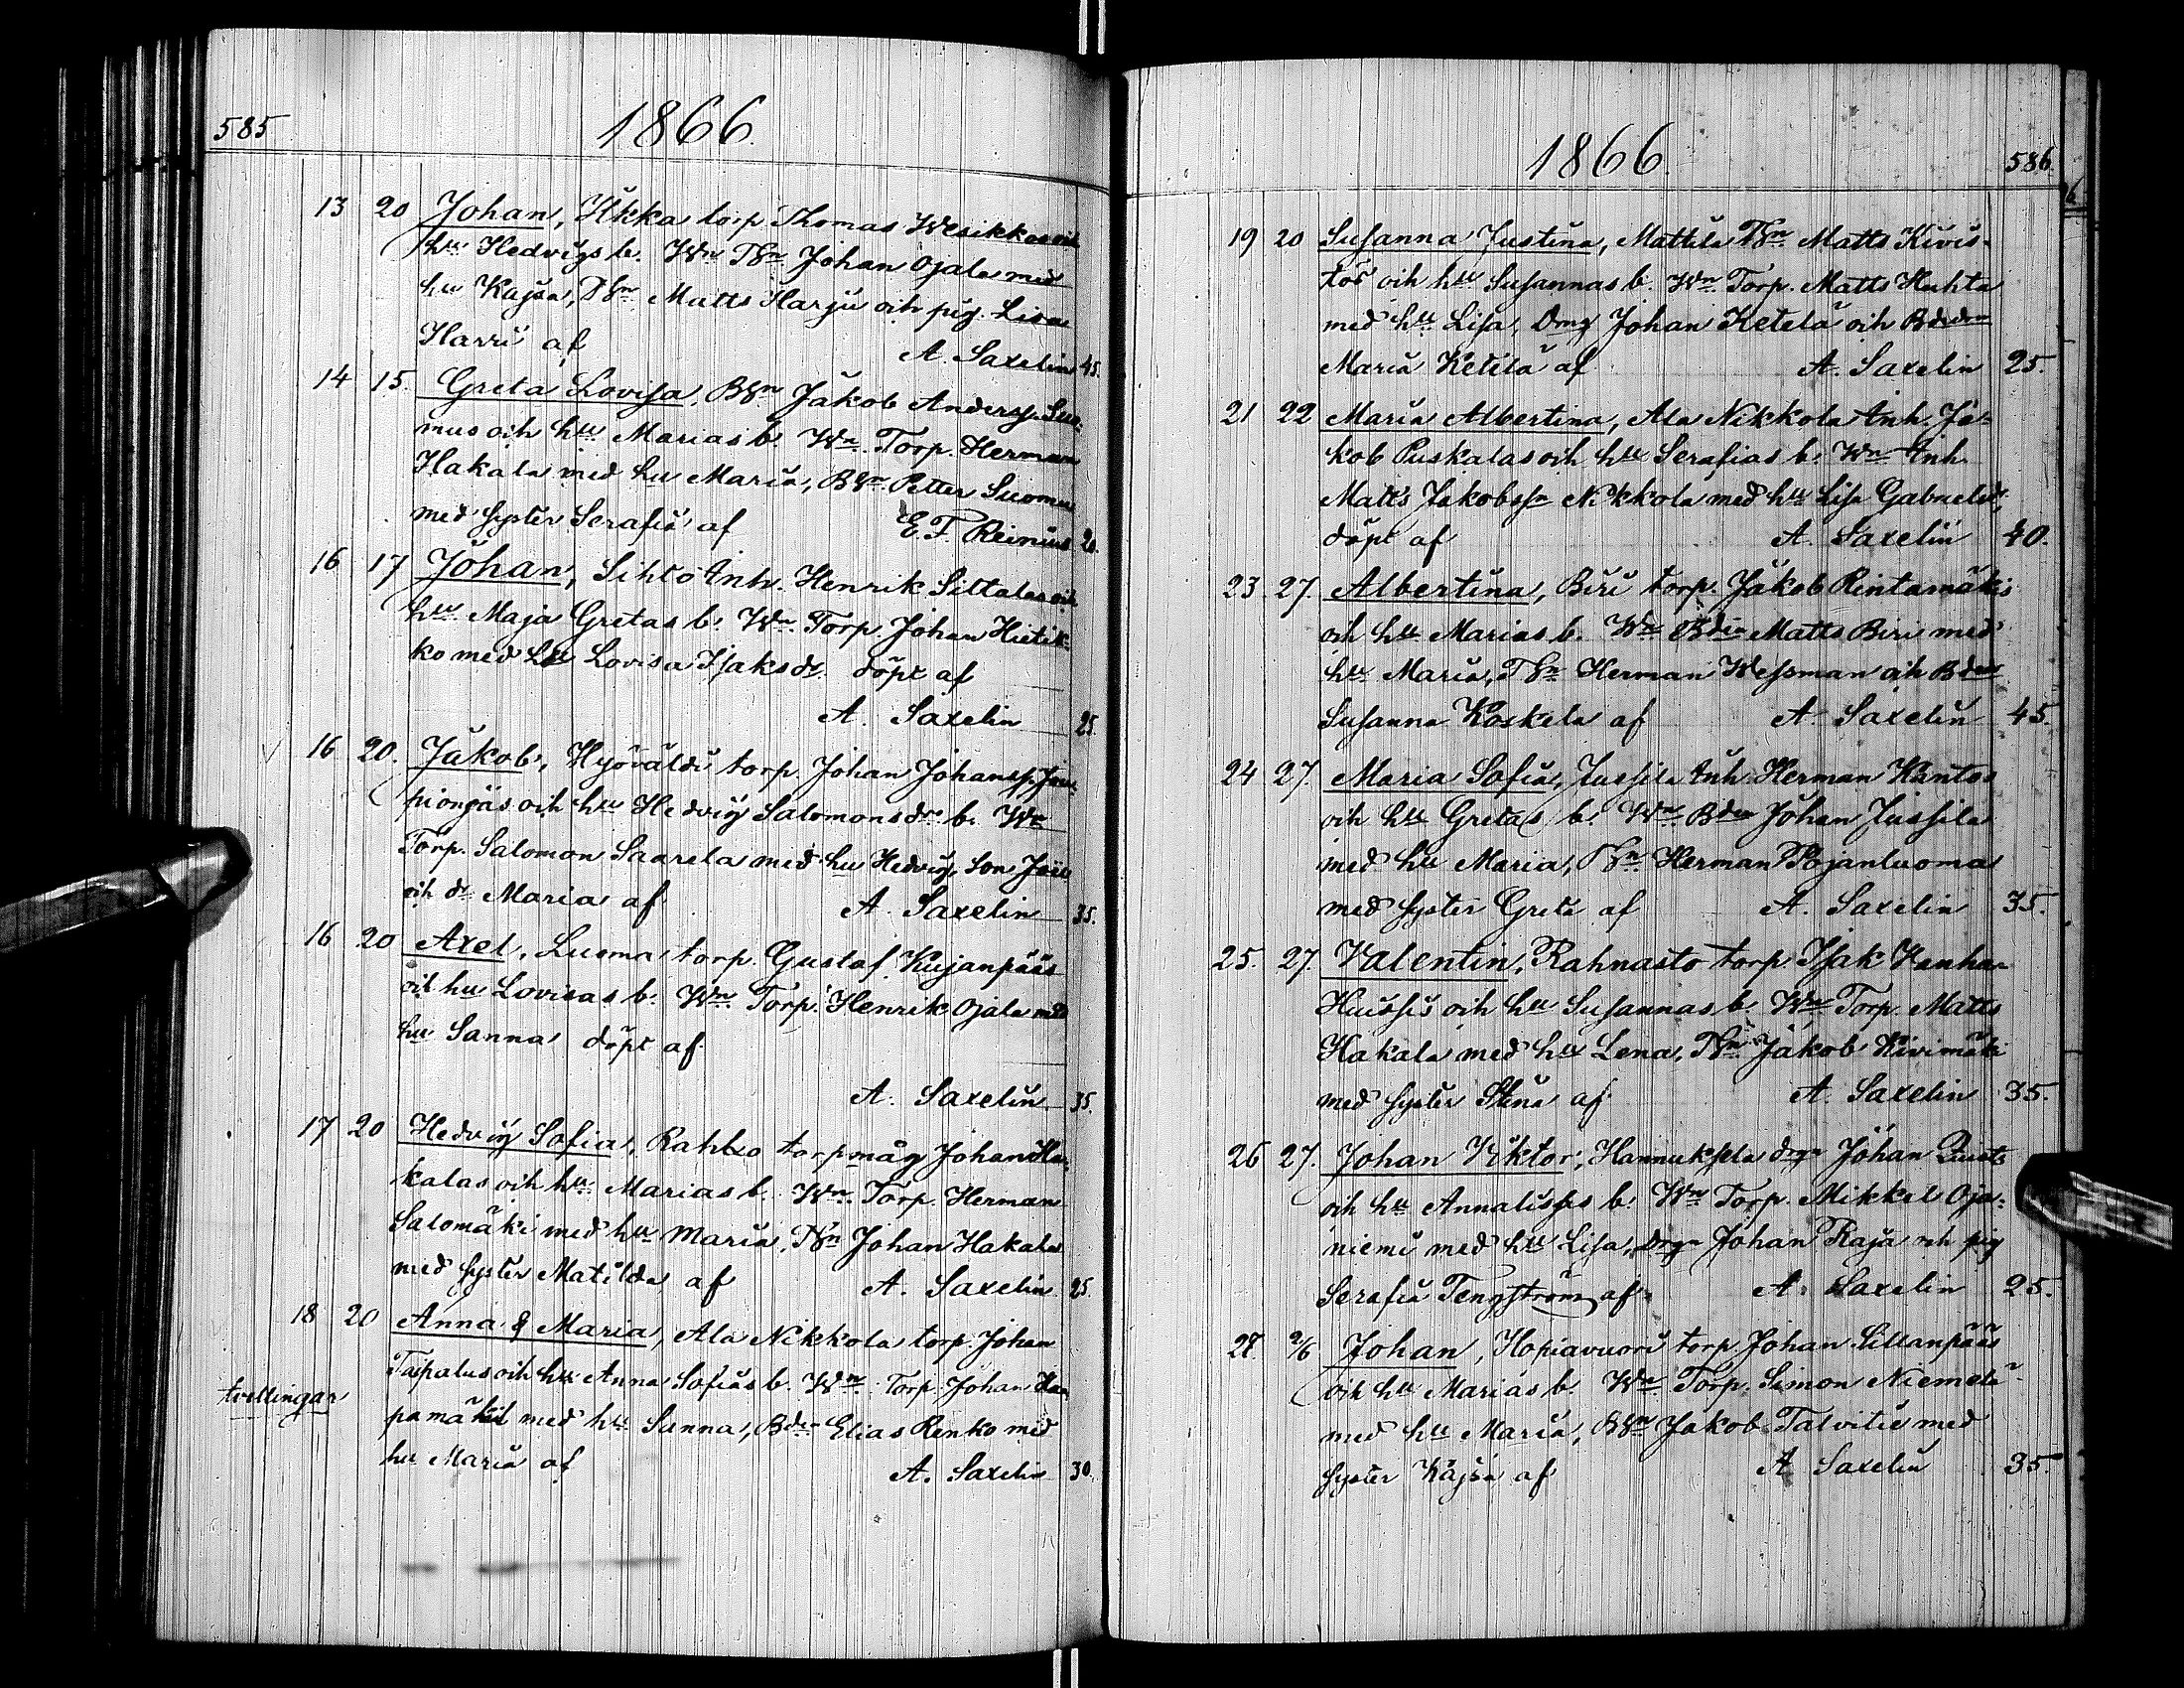 585
1866.
13 20 Johan, Ilkka torp. Thomas Wesikkos och
hu Hedvigs b. Wn Dgn Johan Ojala med
hu Kajsa, Dgn Matts Harju och pig. Lisa
Harri af A. Saxelin 45.
14 15. Greta Lovisa, Bgn Jakob Anderss. Suo-
mus och hu Marias b. Wn Torp. Herman
Hakala med hu Maria, Bgn Petter Suomu
med syster Serafia af E. F. Reinius 20.
16 17 Johan, Sihto Inh. Henrik Siltalas och
hu Maja Gretas b. Wn Torp. Johan Hietik-
ko med hu Lovisa Isaksdr döpt af
A. Saxelin 25.
16 20. Jakob, Hyöväldi torp. Johan Johanss.
piongäs och hu Hedvig Salomonsdrs b. Wn
Torp. Salomon Saarela med hu Hedvig, son
och dr Maria af A. Saxelin 35.
16 20 Axel, Luoma torp. Gustaf Kujanpääs
och hu Lovisas b. Wn Torp. Henrik Ojala med
hu Sanna döpt af
A. Saxelin 35.
17 20 Hedvig Sofia, Rahko torpmåg Johan Ha-
kalas och hu Marias b. Wn Torp. Herman
Salomäki med hu Maria, Dgn Johan Hakala
med syster Matilda af A. Saxelin 25.
18 20 Anna & Maria, Ala Nikkola torp. Johan
Taipalus och hu Anna Sofias b. Wn Torp. Johan
tvillingar
pamäki med hu Sanna, Bdn Elias Renko med
hu Maria af A. Saxelin 30.
1866.
586.
19 20 Susanna Justina, Mattila Dgn Matts Kivis-
tös och hu Susannas b. Wn Torp. Matts Huhta
med hu Lisa, Drng Johan Ketelä och Bdedrn
Maria Ketelä af A. Saxelin 25.
21 22 Maria Albertina, Ala Nikkola Inh. Ja-
kob Puskalas och hu Serafias b. Wn Inh.
Matts Jakobsson Nikkola med hu Lisa Gabrielsd,
döpt af A. Saxelin 40.
23. 27. Albertina, Biri torp. Jakob Rintamäkis
och hu Marias b. Wn Bdn Matts Biri med
hu Maria, Dgn Herman Wessman och Bdens
Susanna Koskela af A. Saxelin 45.
24 27. Maria Sofia, Jussila Inh. Herman Kantos
och hu Gretas b. Wn Bden Johan Jussila
med hu Maria, Dgn Herman Pojanluoma
med syster Greta af A. Saxelin 35.
25. 27. Valentin, Rahnasto torp. Isak Hanha-
Huissis och hu Susannas b. Wn Torp. Matts
Hakala med hu Lena, Dgn Jakob Kivimäki
med syster Stina af A. Saxelin 35.
26 27. Johan Viktor, Hannuksela drgn Johan
och hu Annalisas b. Wn Torp. Mikkel Oja-
niemi med hu Lisa, drgn Johan Raja och pig
Serafia Tengström af A. Saxelin 25.
27. 2/6 Johan, Hopiavuori torp. Johan Sillanpääs
och hu Marias b. Wn Torp. Simon Niemelä
med hu Maria, Bgn Jakob Talvitie med
syster Kajsa af A. Saxelin 35.